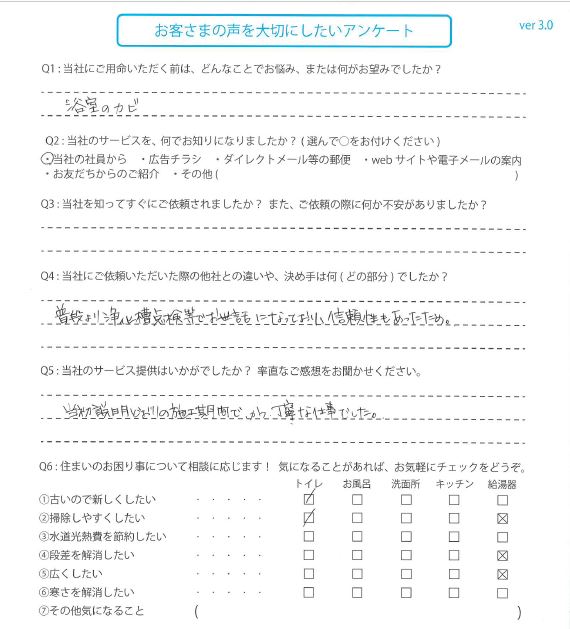 お客さまの声を大切にしたいアンケート
ver 3.0
Q1 : 当社にご用命いただく前は、どんなことでお悩み、または何がお望みでしたか？
浴室のカビ
Q2 : 当社のサービスを、何でお知りになりましたか？ ( 選んで○をお付けください )
・当社の社員から　・広告チラシ　・ダイレクトメール等の郵便　・web サイトや電子メールの案内
・お友だちからのご紹介　・その他 (　　　)
Q3 : 当社を知ってすぐにご依頼されましたか？ また、ご依頼の際に何か不安がありましたか？
Q4 : 当社にご依頼いただいた際の他社との違いや、決め手は何 ( どの部分 ) でしたか？
普段より浄化槽点検等でお世話になっており、信頼性もあったため。
Q5 : 当社のサービス提供はいかがでしたか？ 率直なご感想をお聞かせください。
当初説明どおりの施工期間で、かつ丁寧な仕事でした。
Q6 : 住まいのお困り事について相談に応じます！ 気になることがあれば、お気軽にチェックをどうぞ。
トイレ　お風呂　洗面所　キッチン　給湯器
①古いので新しくしたい　・・・・・　☑　□　□　□　□
②掃除しやすくしたい　・・・・・　☑　□　□　□　☒
③水道光熱費を節約したい　・・・・・　□　□　□　□　□
④段差を解消したい　・・・・・　□　□　□　□　☒
⑤広くしたい　・・・・・　□　□　□　□　☒
⑥寒さを解消したい　・・・・・　□　□　□　□　□
⑦その他気になること　(　　　)